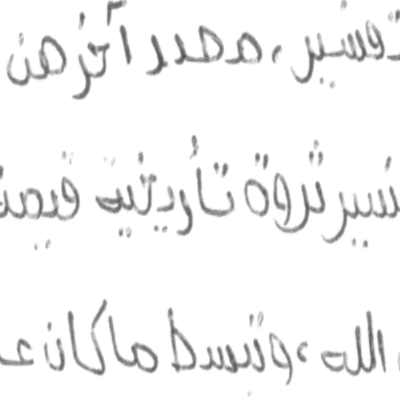 تفسير، مصدر آخر من
سير ثروة تأريخية قيمة
الله، وتبسط ما كان عـ